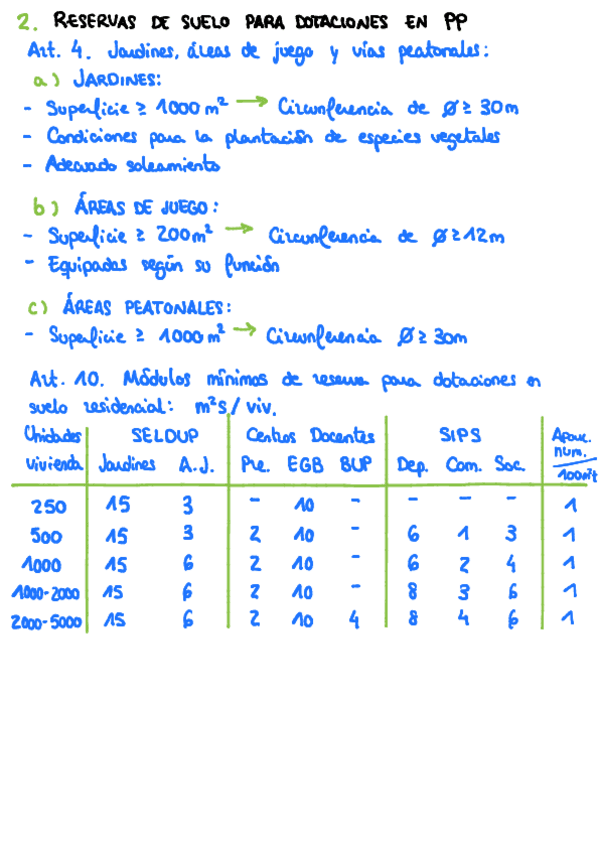 2. RESERVAS DE SUELO PARA DOTACIONES EN PP
Art. 4. Jardines, áreas de juego y vías peatonales:
a) JARDINES:
- Superficie ≥ 1000 m² → Circunferencia de Ø ≥ 30m
- Condiciones para la plantación de especies vegetales
- Adecuado soleamiento
b) ÁREAS DE JUEGO:
- Superficie ≥ 200m² → Circunferencia de Ø ≥ 12m
- Equipadas según su función
c) ÁREAS PEATONALES:
- Superficie ≥ 1000 m² → Circunferencia Ø ≥ 30m
Art. 10. Módulos mínimos de reserva para dotaciones en
suelo residencial: m²s/viv.
Unidades SELDUP Centros Docentes SIPS Aparc. num.
vivienda Jardines A.J. Pre. EGB BUP Dep. Com. Soc. 100m²t
250 15 3 - 10 - - - - 1
500 15 3 2 10 - 6 1 3 1
1000 15 6 2 10 - 6 2 4 1
1000-2000 15 6 2 10 - 8 3 6 1
2000-5000 15 6 2 10 4 8 4 6 1